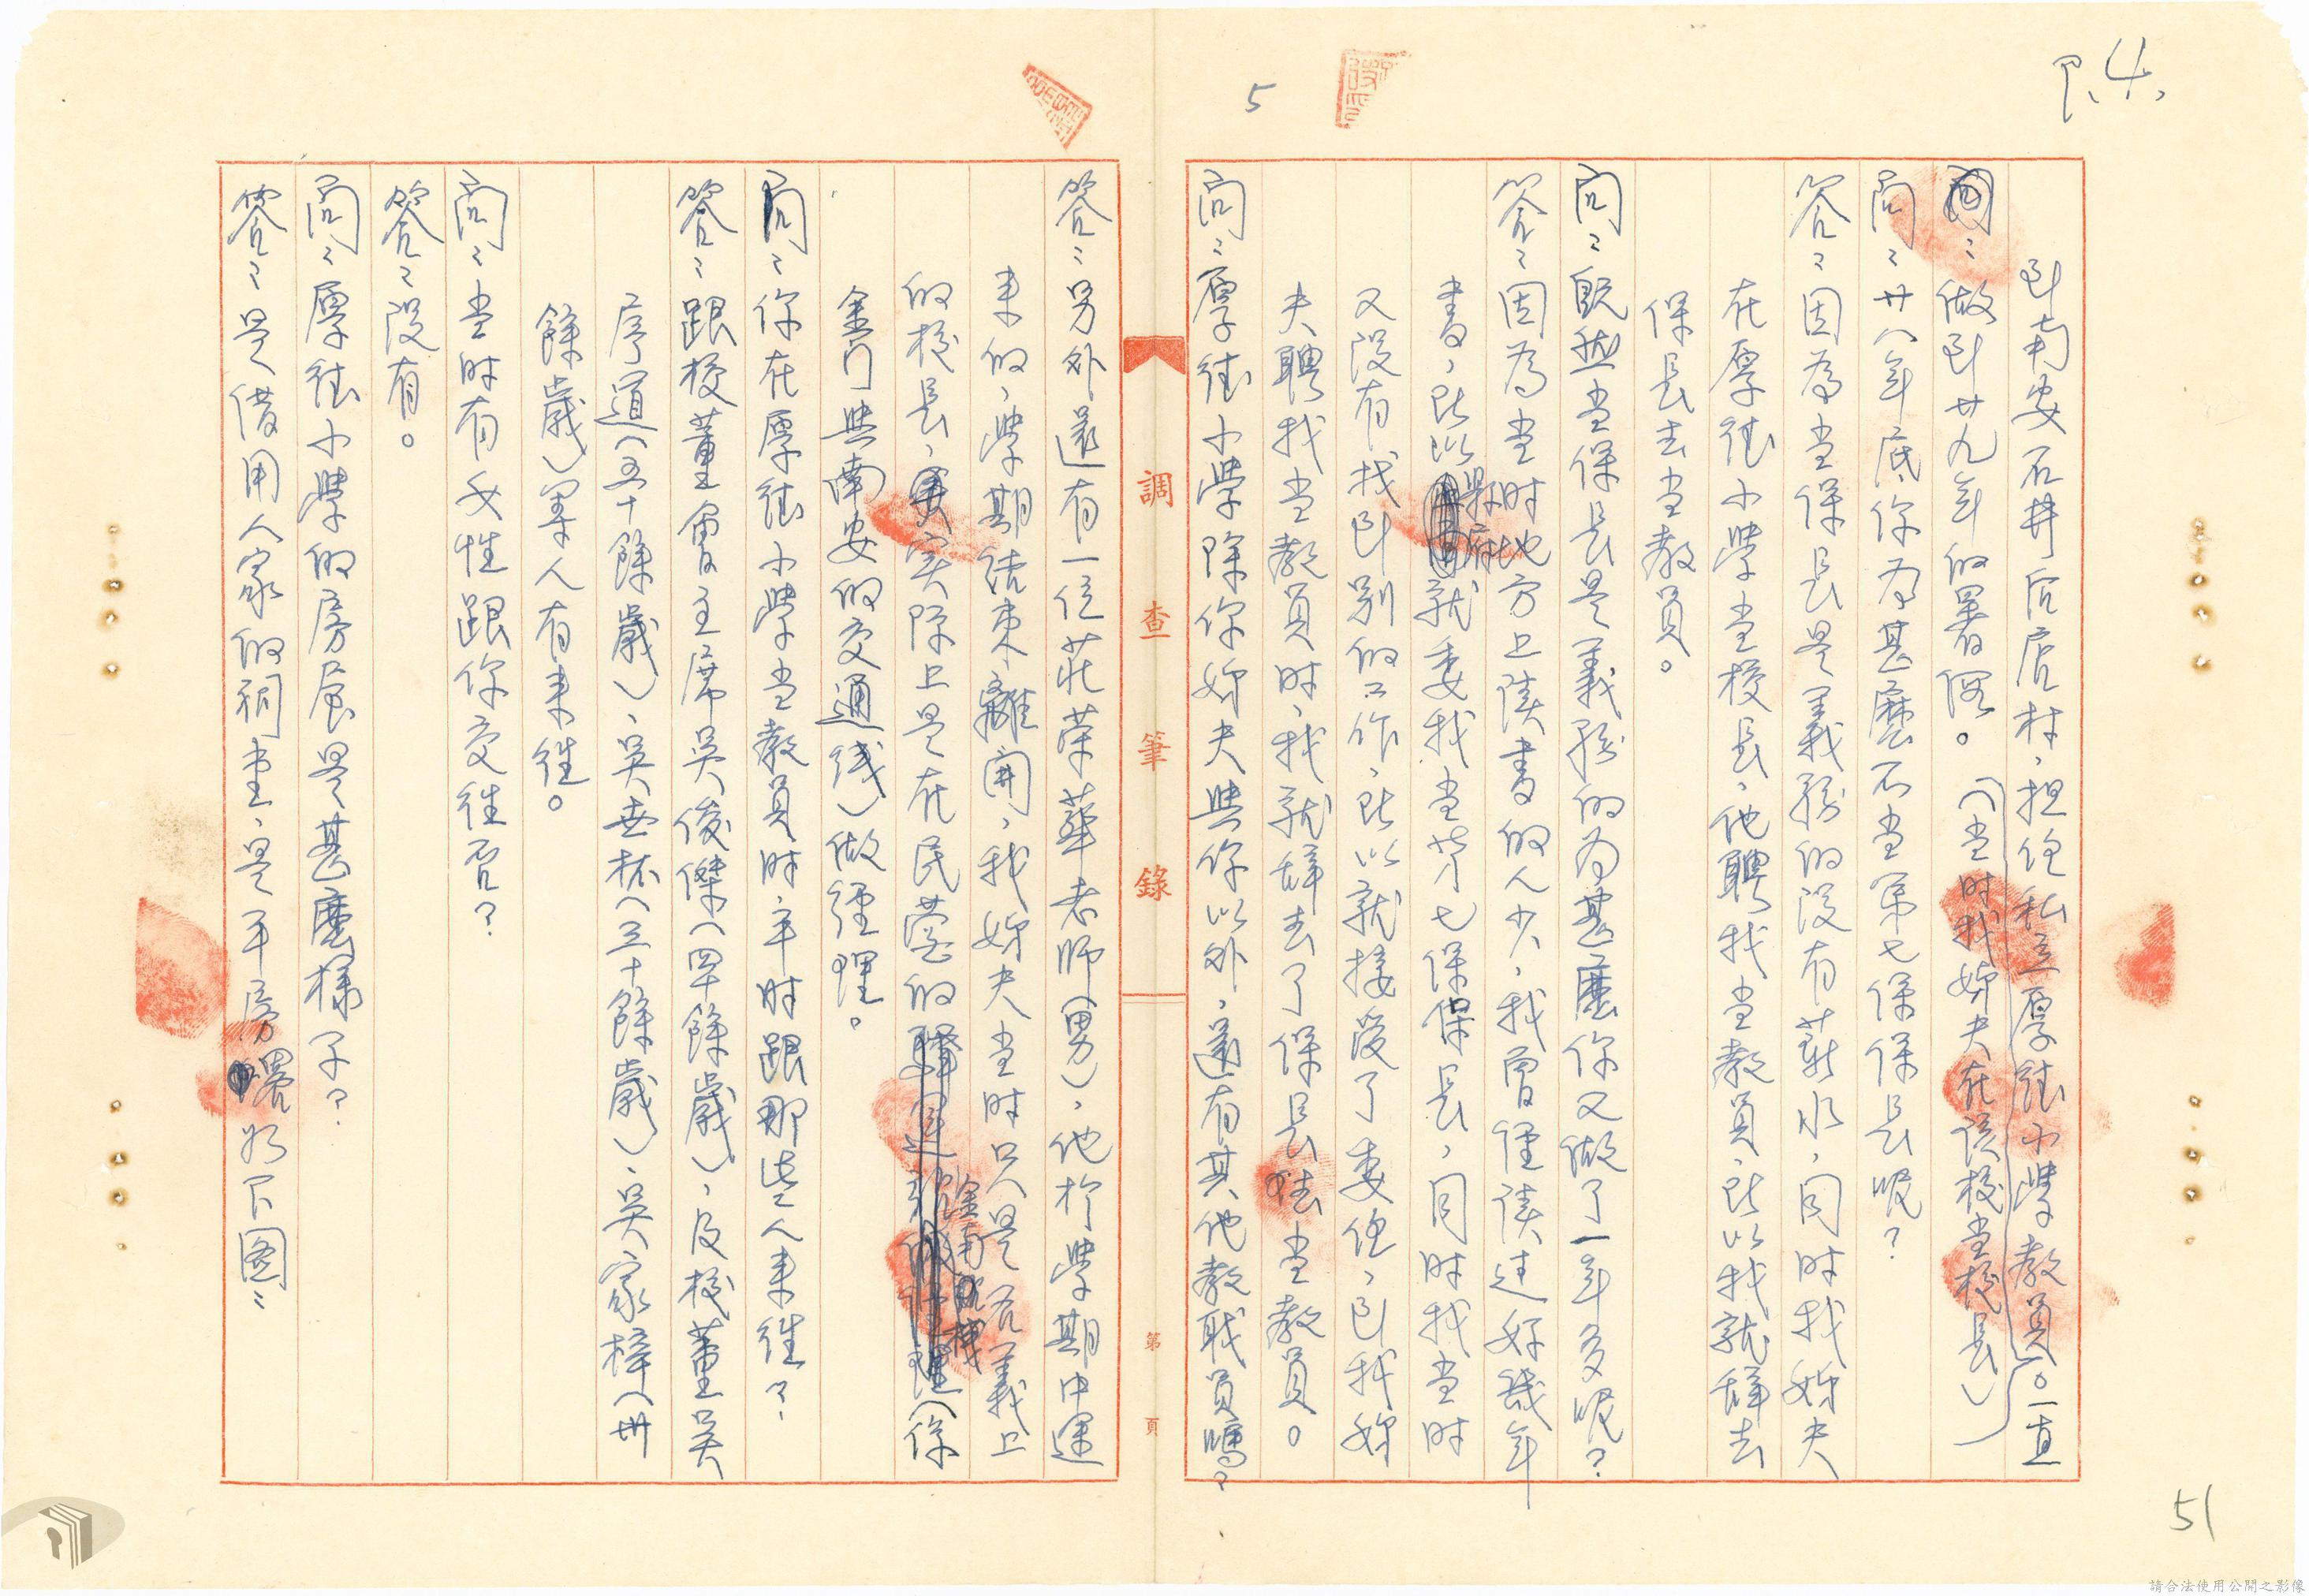 P.4.
5
到南安石井后店村，担任私立厚德小學教員。一直
做到廿九年的暑假。（当时我姊夫在該校当校長）
問：廿八年底你為甚麼不当第七保保長呢？
答：因為当保長是義務的没有薪水，同时我姊夫
在厚德小學当校長，他聘我当教員，所以我就辞去
保長去当教員。
問：既然当保長是義務的為甚麼你又做了一年多呢？
答：因為当时地方上讀書的人少，我曾經讀过好幾年
書，所以縣府就委我当第七保保長，同时我当时
又没有找到别的工作，所以就接受了委任，到我姊
夫聘我当教員时，我就辞去了保長去当教員。
問：厚德小學除你姊夫與你以外，還有其他教职員嗎？
調查筆錄
第 頁
答：另外還有一位莊荣華老師（男），他於學期中途
来的，學期結束離開，我姊夫当时只是名義上
的校長，實際上是在民营的金南（係
金门與南安的交通线）做經理。
問：你在厚德小學当教員时，平时跟那些人来往？
答：跟校董會主席吳俊傑（四十餘歲），及校董吳
序道（五十餘歲），吳世杯（三十餘歲），吳家梓（卅
餘歲）等人有来往。
問：当时有女性跟你交往否？
答：没有。
問：厚德小學的房屋是甚麼樣子？
答：是借用人家的祠堂，是平房，畧如下图：
51
請合法使用公開之影像